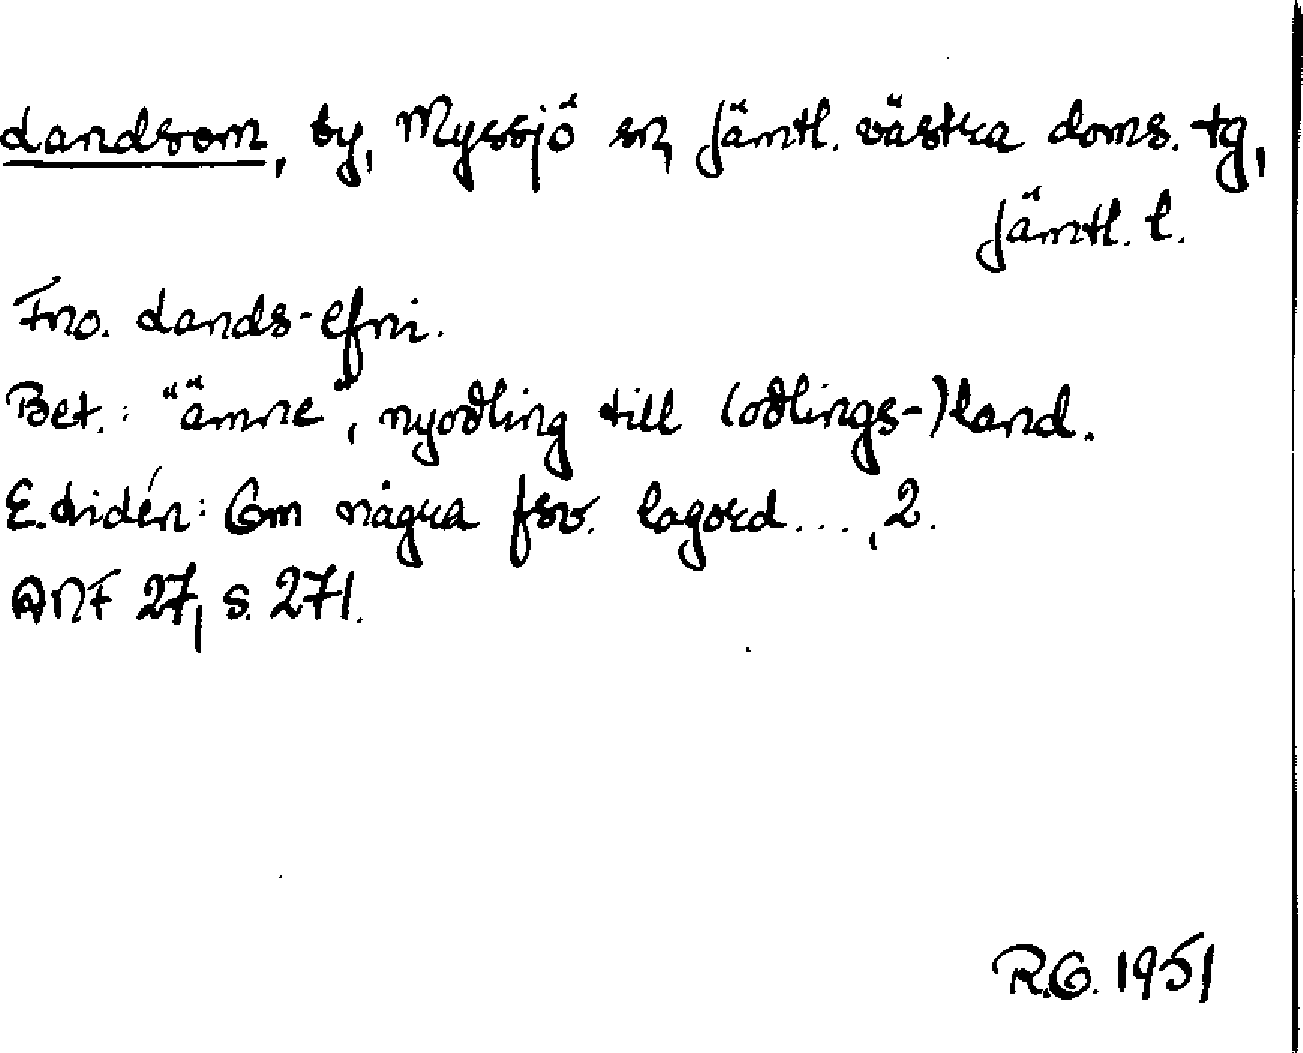 Landsom, by, Myssjö sn, Jämtl. västra doms. tg,
Jämtl. l.
Fno. lands-efni.
Bet.: "ämne", nyodling till (odlings-)land.
E. Lidén: Om några fsv. lagord..., 2.
ANF 27, s. 271.
R.O. 1951